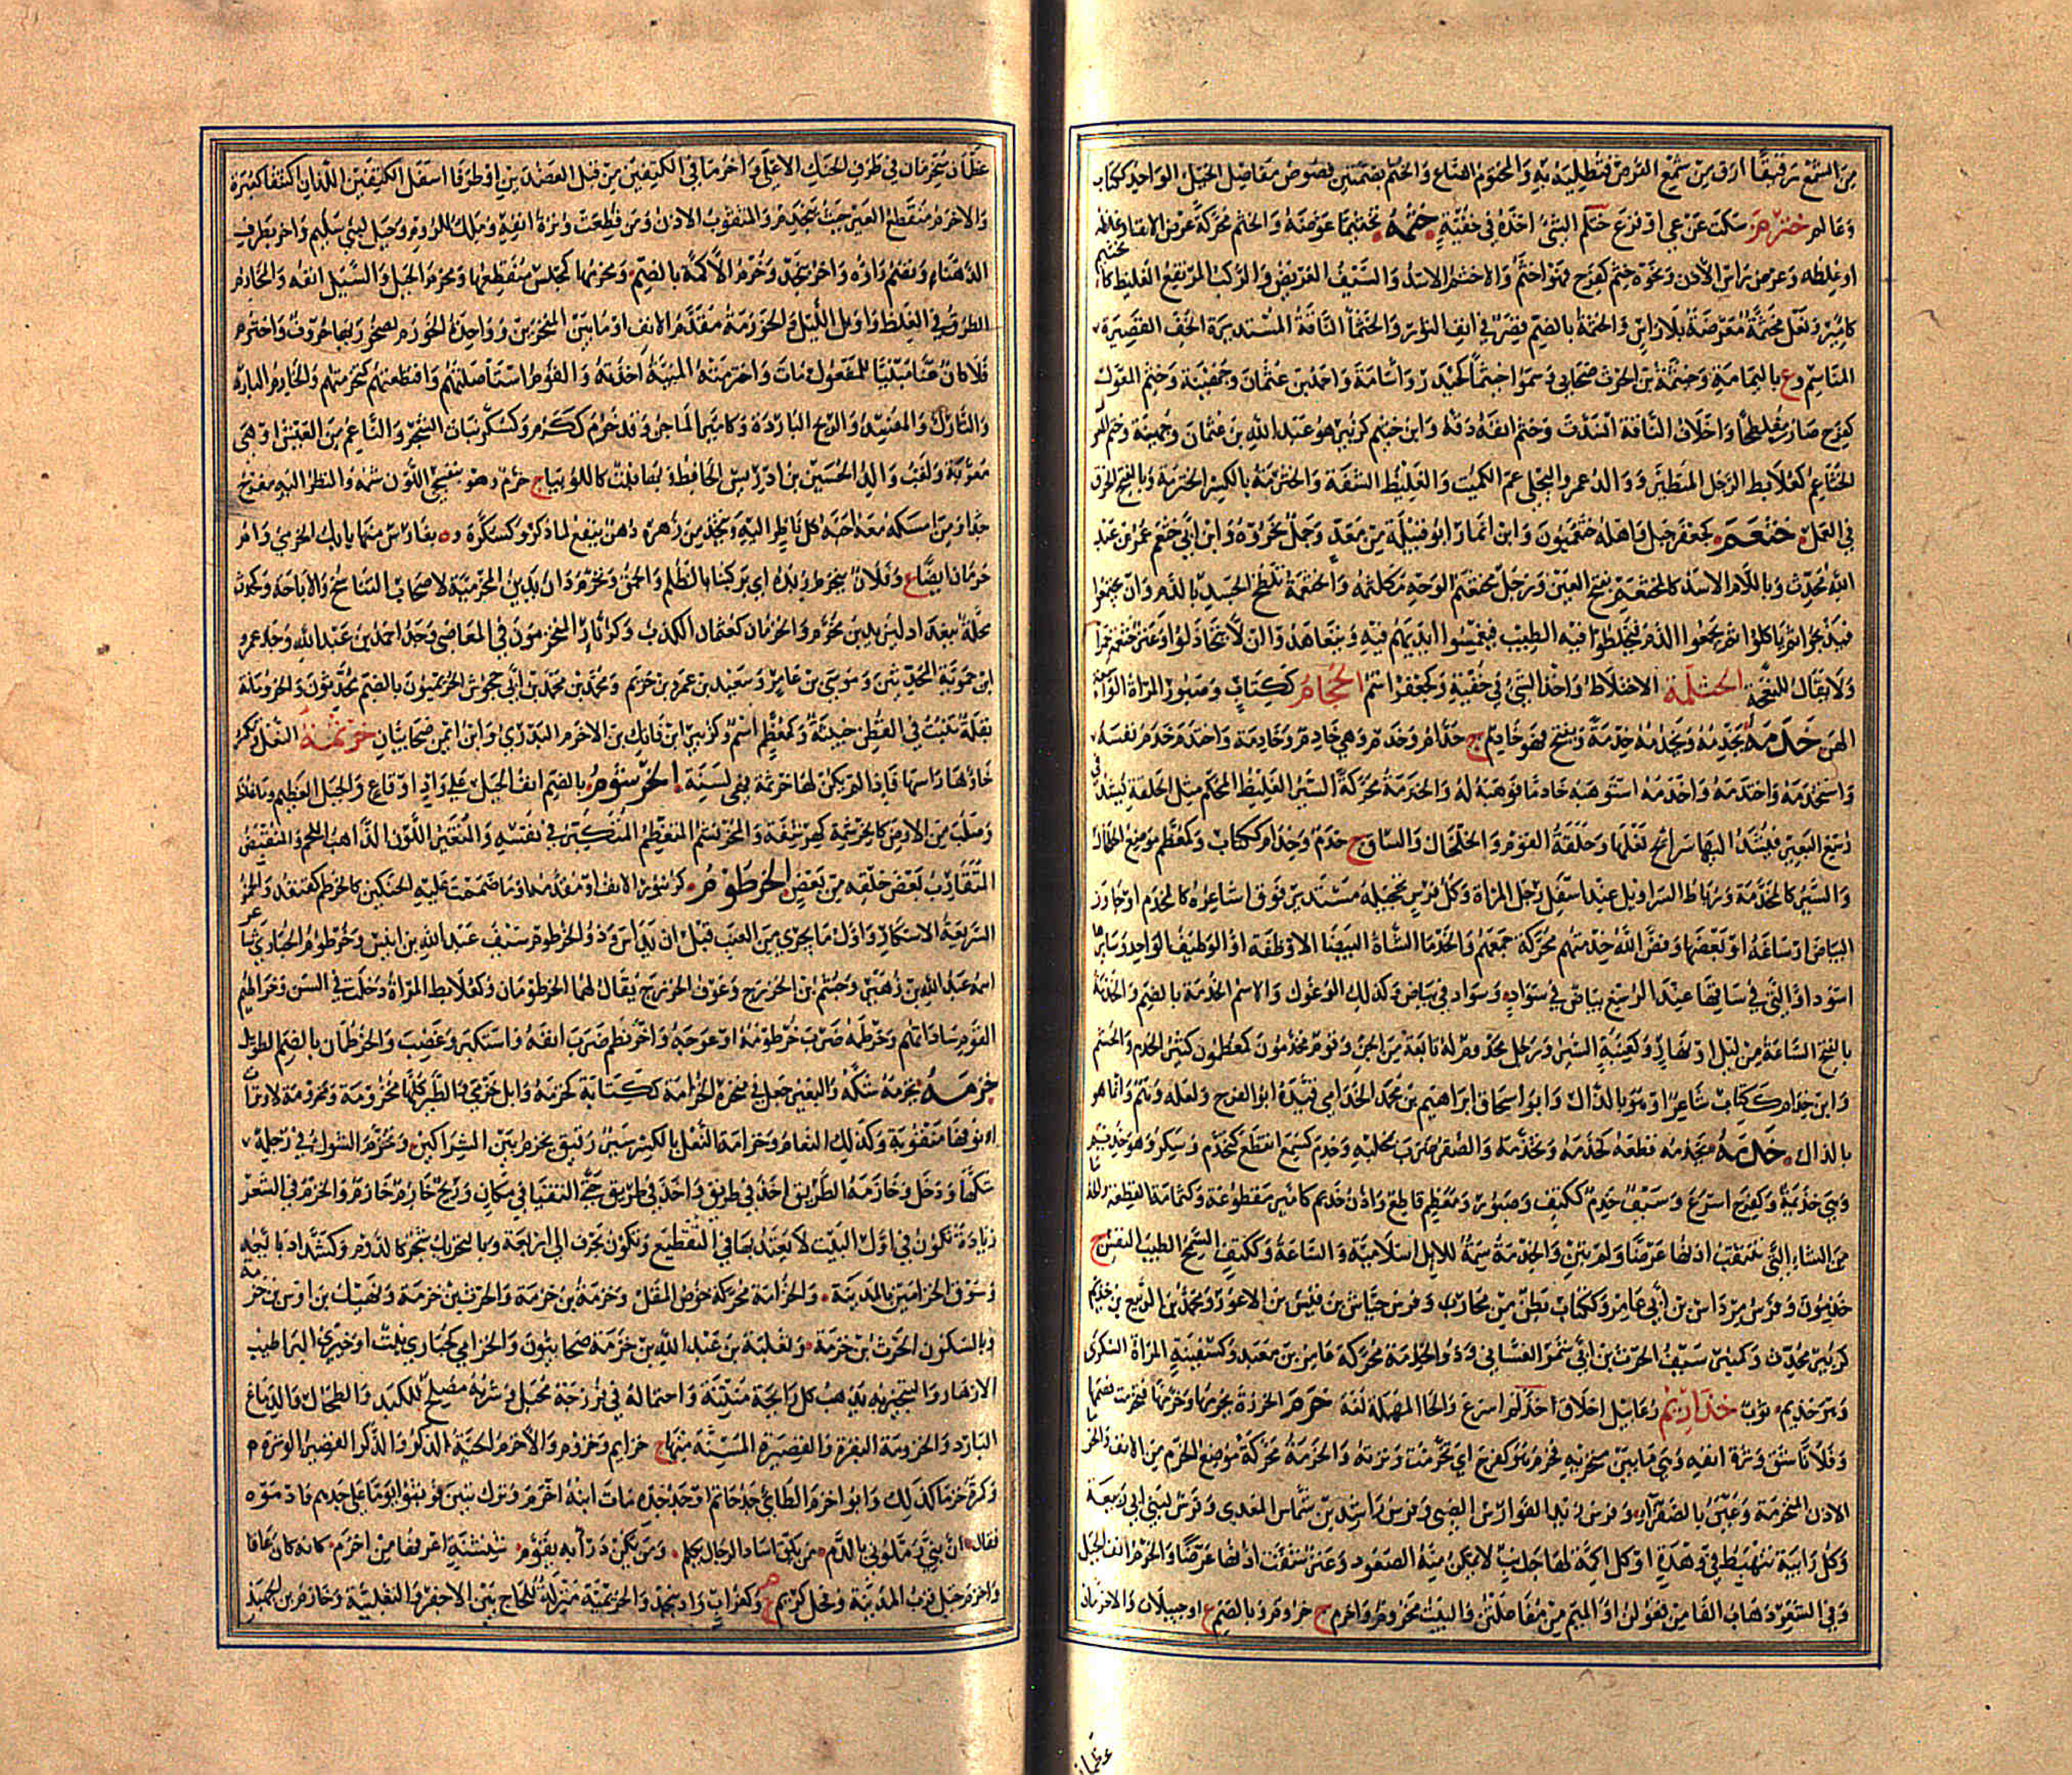 من الشمع رقيقا ارق من شمع القرص فتطليه به والمختوم الصاع والختم بضمتين فصوص مفاصل الخيل الواحد ككتاب
وعالم خترم سكت عن عي او فزع ختلم الشئ اخذه في خفية خثمه تخثيما عرضه والخثم محركة عرض الانف او غلظه
او غلظه وعرض راس الاذن ونحوه خثم كفرح فهو اخثم والاخثم الاسد والسيف العريض والركب المرتفع الغليظ كالخثيم
كامير ونعل مخثمة معرضة بلا راس والخثمة بالضم قصر في انف الثور والخثماء الناقة المستديرة الخف القصيرة
المناسم وع باليمامة وخيثمة بن الحرث صحابي وسموا خيثما كحيدر واسامة واحمد بن عثمان وجهينة وخثم المعول
كفرح صار مفلطحا واخلاف الناقة انسدت وخثم انفه دقه وابن خثيم كزبير هو عبد الله بن عثمان وجهينة
الخثارم كعلابط الرجل المتطير ووالد عمرو البجلي عم الكميت والغليظ الشفة والخثرمة بالكسر الخترمة وبالفتح الخرق
في العمل خثعم كجعفر جبل واهله خثعميون وابن انمار ابو قبيلة من معد وجمل نحروه وابن ابي خثعم عمر بن عبد
الله محدث وباللام الاسد كالمخثعم بفتح العين ورجل مخثعم الوجه مكلثمه والخثعمة تلطخ الجسد بالدم وان يجتمعوا
فيذبحوا ثم ياكلوا ثم يجمعوا الدم فيخلطوا فيه الطيب فيغمسوا ايديهم فيه ويتعاهدوا ان لا يتخاذلوا وعنز خثعم حمراء
ولا يقال للنعجة الخثلمة الاختلاط واخذ الشئ في خفية وكجعفر اسم الخجام ككتاب وصبور المراة الواسعة
الهن خدمه يخدمه ويخدمه خدمة ويفتح فهو خادم ج خدام وخدم وهي خادم وخادمة واختدم خدم نفسه
واستخدمه واختدمه واخدمه استوهبه خادما فوهبه له والخدمة محركة السير الغليظ المحكم مثل الحلقة تشد في
رسغ البعير فيشد اليها سرائح نعلها وحلقة القوم والخلخال والساق ج خدم وخدام ككتاب وكمعظم موضع الخلخال
والسير كالمخدمة ورباط السراويل عند اسفل رجل المراة وكل فرس تحجيله مستدير فوق اشاعره كالاخدم او جاوز
البياض ارساغه او بعضها وفض الله خدمتهم محركة جمعهم والخدماء الشاة البيضاء الاوظفة او الوظيف الواحد وسائرها
اسود او التي في ساقها عند الرسغ بياض في سواد وسواد في بياض وكذلك الوعول والاسم الخدمة بالضم والخدمة
بالفتح الساعة من ليل او نهار وكعنبة السير ورجل مخدوم له تابعة من الجن وقوم مخدمون كمعظمون كثير الخدم والحشم
وابن خدام ككتاب شاعر او هو بالذال وابو اسحاق ابراهيم بن محمد الخدامي قيده ابو الفرج ولعله وهم وانما هو
بالذال خذمه يخذمه قطعه كخذمه وتخذمه والصقر ضرب بمخلبه وخذم كسمع انقطع كتخذم وسكر وهو خذيم
وهي خذيمة وكفرح اسرع وسيف خذم ككتف وصبور ومعظم قاطع واذن خذيم كامير مقطوعة وكثمامة القطعة والخذماء
من الشاء التي شقت اذنها عرضا ولم تبن والخذمة سمة للابل اسلامية والساعة وككتف السمح الطيب النفس ج
خذمون وفرس مرداس بن ابي عامر وككتاب بطن من محارب وفرس حياش بن قيس بن الاعور ومحمد بن الربيع بن خذيم
كزبير محدث وكمنبر سيف الحرث بن ابي شمر الغساني وذو الخذمة محركة عامر بن معبد وكسفينة المراة السكرى
وهو خذيم ثوب خذاريم رعابيل اخلاق اخذلم اسرع والحاء المهملة لغة خرم الخرزة يخرمها وخرمها فتخرمت فصمها
وفلانا شق وترة انفه وهي ما بين منخريه فخرم هو كفرح اي تخرمت وترته والخرمة محركة موضع الخرم من الانف والخرماء
الاذن المنخرمة وعين بالصفراء وفرس زيد الفوارس الضبي وفرس راشد بن شماس المعدي وفرس لبني ابي ربيعة
وكل رابية تنهبط في وهدة او كل اكمة لها جانب لا يمكن منه الصعود وعنز شقت اذنها عرضا والخرم انف الجبل
وفي الشعر ذهاب الفاء من فعولن او الميم من مفاعلتن والبيت مخروم واخرم ج خروم وبالضم ع او جبيلان والاخرمان
عظمان
عظمان منخرمان في طرف الحنك الاعلى واخرما في الكتفين من قبل العضدين او طرفا اسفل الكتفين اللذان اكتنفا كعبرة
والاخرم منقطع العير حيث ينجدم والمثقوب الاذن ومن قطعت وترة انفه وملك للروم وجبل لبني سليم واخر بطرف
الدهناء وتضم راؤه واخر بنجد وخرم الاكمة بالضم ومخرمها كمجلس منقطعها ومخرم الجبل والسيل انفه والمخارم
الطرق في الغلظ واوائل الليل والخورمة مقدم الانف او ما بين المنخرين وواحدة الخورم لصخور بها خروق واخترم
فلان عنا مبنيا للمفعول مات واخترمته المنية اخذته والقوم استاصلتهم واقتطعتهم كتخرمتهم والخارم البارد
والتارك والمفسد والريح الباردة وكامير الماجن وقد خرم ككرم وكسكر نبات الشجر والناعم من العيش او هي
معربة ولقب والد الحسين بن ادريس الحافظ وبهاء نبت كاللوبياء ج خرم وهو بنفسجي اللون شمه والنظر اليه مفرح
جدا ومن امسكه معه احبه كل ناظر اليه ويتخذ من زهره دهن ينفع لما ذكر وكسكرة ة بفارس منها بابك الخرمي وام
خرمان ايضا ع وفلان يتخرم زنده اي يركبنا بالظلم والحمق وتخرم دان بدين الخرمية لاصحاب التناسخ والاباحة وكمحدث
محلة ببغداد ليزيد بن مخرم والخرمان كعثمان الكذب وكرمان المتخرمون في المعاصي وجد احمد بن عبد الله وجد عمرو
ابن حموية المحدثين وموسى بن عامر وسعيد بن عمرو بن خريم ومحمد بن محمد بن ابي جحوش الخريميون بالضم محدثون والخرومانة
بقلة تنبت في العطن خبيثة وكمعظم اسم وكزبير ابن فاتك بن الاخرم البدري وابن ايمن صحابيان خرثمة النعل بكسر
خائها راسها فاذا لم يكن لها خرثمة فهي لسنة الخرشوم بالضم انف الجبل على واد او قاع والجبل العظيم وما غلظ
وصلب من الارض كالخرشمة كهرشفة والمخرنشم المتعظم المتكبر في نفسه والمتغير اللون الذاهب اللحم والمنقبض
المتقارب بعض خلقه من بعض الخرطوم كزنبور الانف او مقدمه او ما ضممت عليه الحنكين كالخرطم كقنفذ والخمر
السريعة الاسكار واول ما يجري من العنب قبل ان يداس وذو الخرطوم سيف عبد الله بن انيس وخرطوم الحبارى شاعر
اسمه عبد الله بن زهير وجشم بن الخزرج وعوف بن الخزرج يقال لهما الخرطومان وكعلابط المراة دخلت في السن وخراطيم
القوم ساداتهم وخرطمه ضرب خرطومه او عوجه واخرنطم ضرب انفه واستكبر وغضب والخرطمان بالضم الطويل
خزمه يخزمه شكه والبعير جعل في منخره الخزامة ككتابة كخزمه وابل خزمى والطير كلها مخزومة ومخزمة لان وترات
انوفها مثقوبة وكذلك النعام وخزامة النعل بالكسر سير رقيق يخزم بين الشراكين وتخزم الشوك في رجله
شكها ودخل وخازمه الطريق اخذ في طريق واخذ في طريق حتى التقيا في مكان وريح خازم خارم والخزم في الشعر
زيادة تكون في اول البيت لا يعتد بها في التقطيع وتكون بحرف الى اربعة وبالتحريك شجر كالدوم وكشداد بائعه
وسوق الخزامين بالمدينة والخزامة محركة خوص المقل وخزمة بن خزمة والحرث بن خزمة ونهيك بن اوس بن خزمة
وبالسكون الحرث بن خزمة وثعلبة بن عبد الله بن خزمة صحابيون والخزامى كحبارى نبت او خيري البر اطيب
الازهار والتبخير به يذهب كل رائحة منتنة واحتماله في فرزجة محبل وشربه مصلح للكبد والطحال والدماغ
البارد والخزومة البقرة والقصيرة المسنة منها ج خزايم وخزوم والاخزم الحية الذكر والذكر القصير الوترة
وكمرة خزماء كذلك وابو اخزم الطائي جد حاتم او جد جده مات ابنه اخزم وترك بنين فوثبوا يوما على جدهم فادموه
فقال ان بني رملوني بالدم من يلق اساد الرجال يكلم ومن يكن درء به يقوم شنشنة اعرفها من اخزم كانه كان عاقا
واخزم جبل قرب المدينة وفحل كريم م وكغراب واد بنجد والخزيمية منزلة للحاج بين الاجفر والثعلبية وخازم بن الجهبذ